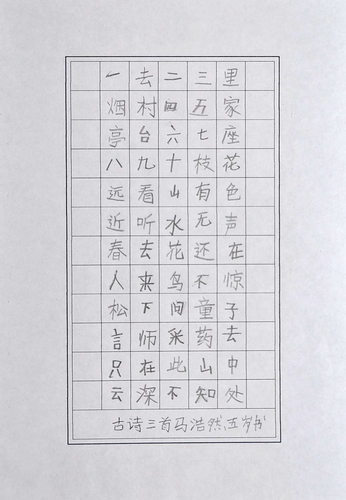 一去二三里
烟村四五家
亭台六七座
八九十枝花
远看山有色
近听水无声
春去花还在
人来鸟不惊
松下问童子
言师采药去
只在此山中
云深不知处
古诗三首马浩然五岁书